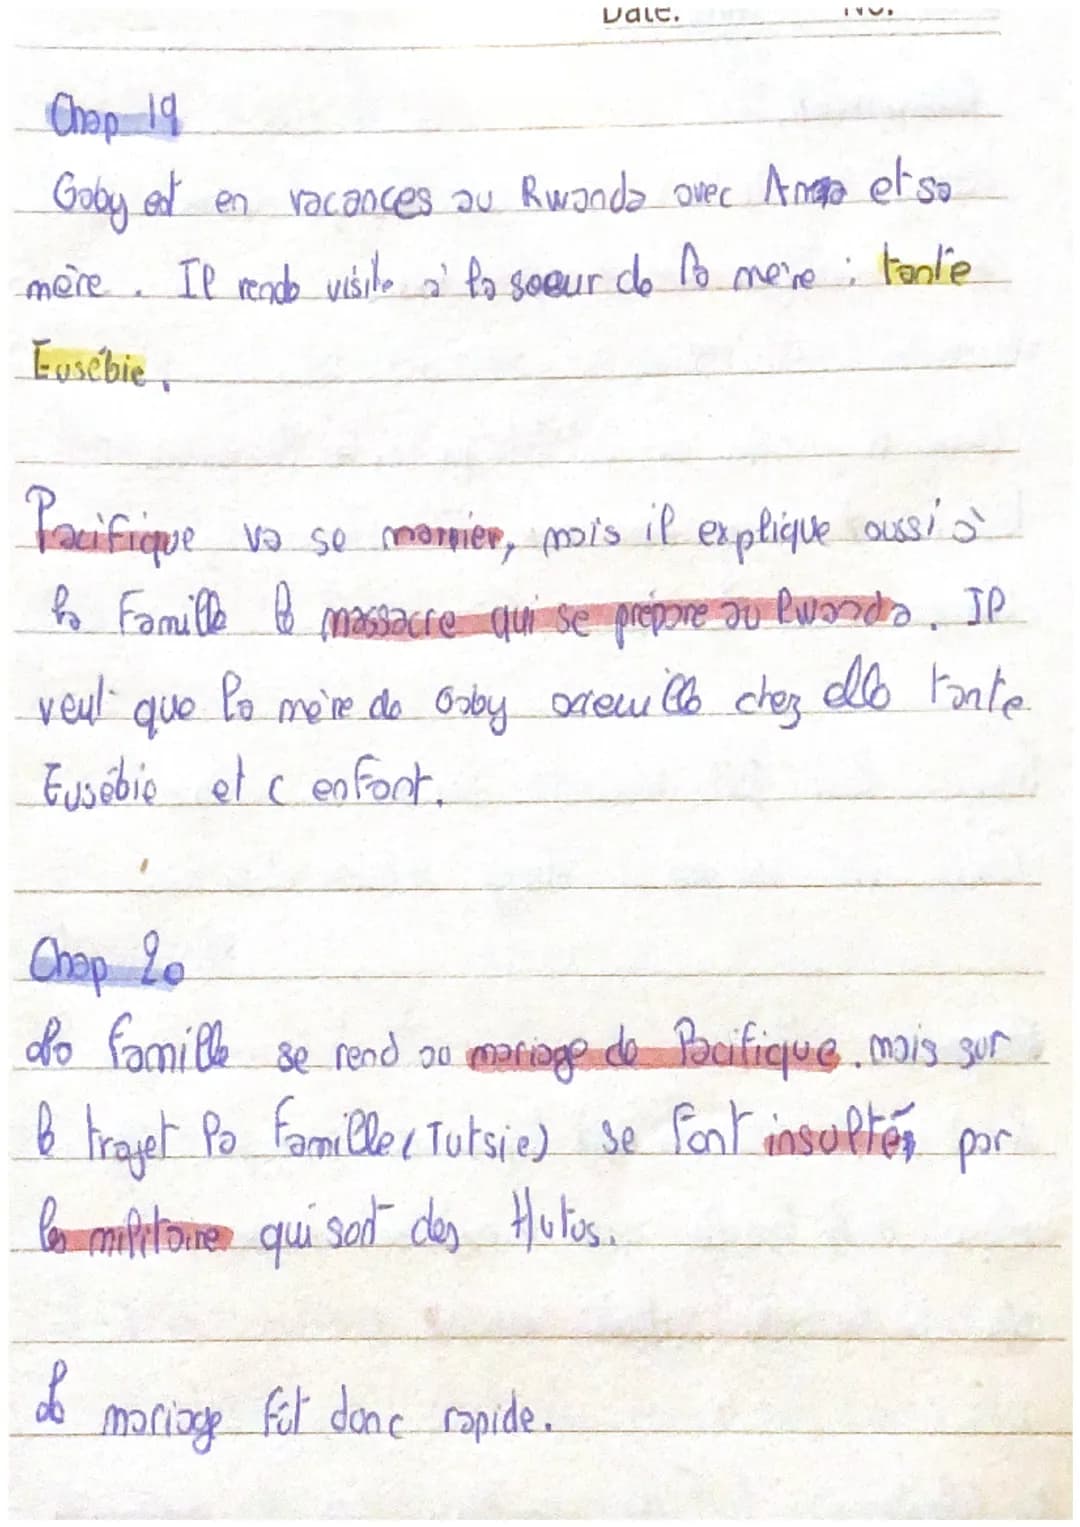 Date. No.
Chap 19
Gaby est en vacances au Rwanda avec Anna et sa
mère. Il rend visite à la soeur de la mère : tante
Eusébie.
Pacifique va se marrier, mais il explique aussi à
la famille le massacre qui se prépare au Rwanda. Il
veut que la mère de Gaby acceuille chez elle tante
Eusébie et c enfant.
Chap 20
La famille se rend au mariage de Pacifique. mais sur
le trajet la famille (Tutsie) se font insultés par
les militaire qui sont des Hutus.
Le mariage fût donc rapide.